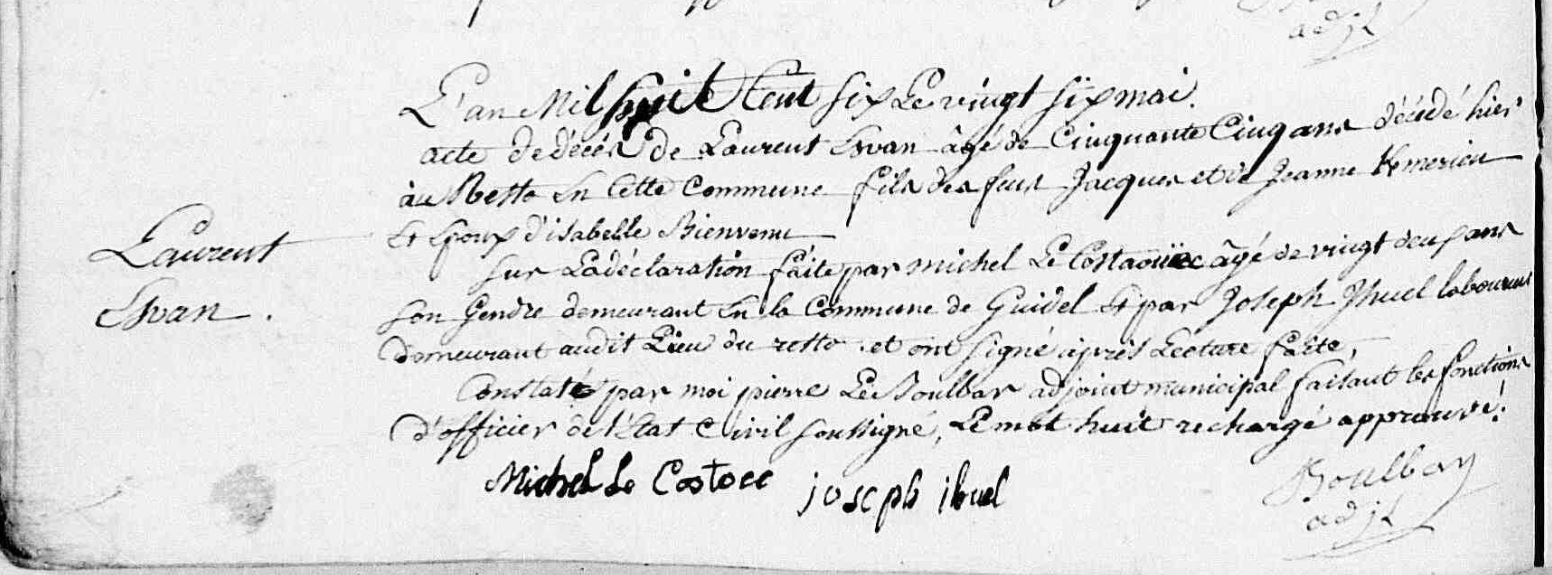 adjt
L'an Mil huit Cent six Le vingt six mai.
acte de décès de Laurent Evan âgé de Cinquante Cinq ans décédé hier
au Resto En Cette Commune fils des feus Jacques et de Jeanne Kmerien
Et Epoux d'isabelle Bienvenu
Laurent
Evan.
Sur La déclaration faite par michel Le Costaouëc âgé de vingt deux ans
son Gendre demeurant En la Commune de Guidel Et par Joseph Jhuel laboureurs
Demeurant audit Lieu du resto . et ont signé après Lecture faite,
Constaté par moi pierre Le Boulbar adjoint municipal faisant les fonctions
d'officier de l'Etat Civil soussigné, Le mot huit rechargé approuvé.
Michel Le Costoec joseph ihuel
Boulbar
adjt